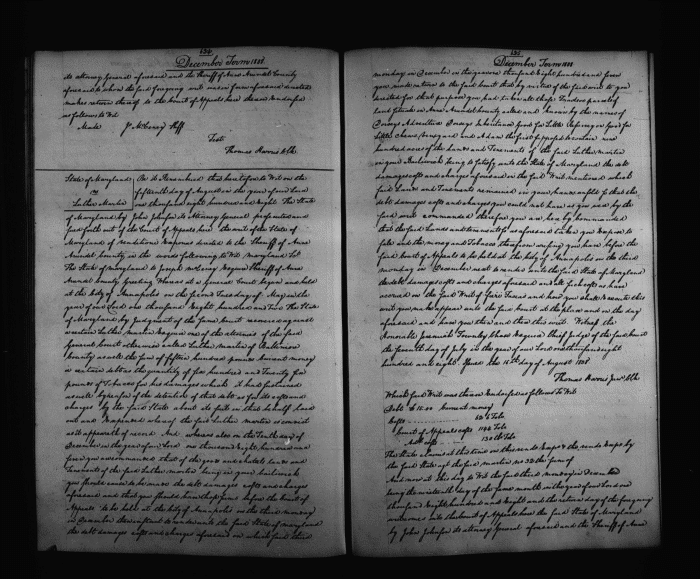 134
December Term 1808.
its attorney General aforesaid and the Sheriff of Anne Arundel County
aforesaid to whom the said foregoing writ was in form aforesaid directed
makes return thereof to the Court of Appeals here thereon endorsed
as follows to Wit
Made J. McCeney Shff
Test
Thomas Harris Clk
State of Maryland
vs
Luther Martin
Be it Remembered that heretofore to Wit on the
fifteenth day of August in the year of our Lord
one thousand eight hundred and eight The State
of Maryland by John Johnson its Attorney General prosecuted and
sued forth out of the Court of Appeals here the writ of the State of
Maryland of venditioni exponas directed to the Sheriff of Anne
Arundel County in the words following to Wit Maryland Sct
The State of Maryland to Joseph McCeney Esquire Sheriff of Anne
Arundel County Greeting Whereas at a General Court begun and held
at the City of Annapolis on the second Tuesday of May in the
year of our Lord one thousand eight hundred and two The State
of Maryland by Judgment of the same Court recovered against
a certain Luther Martin Esquire one of the attornies of the said
general Court otherwise called Luther Martin of Baltimore
County as well the sum of fifteen hundred pounds current money
a certain debt as the quantity of five hundred and Twenty four
pounds of Tobacco for his damages which it had sustained
as well by reason of the detention of that debt as for its costs and
charges by the said State about its suit in that behalf laid
out and expended whereof the said Luther Martin is convict
as it appears of record And whereas also on the Tenth day of
December in the year of our Lord one thousand eight hundred and
seven you was commanded that of the goods and chattels lands and
Tenements of the said Luther Martin being in your bailiwick
you should cause to be made the debt damages costs and charges
aforesaid and that you should have those sums before the Court of
Appeals to be held at the City of Annapolis on the third monday
in December then instant to render unto the said State of Maryland
the debt damages costs and charges aforesaid on which said third
135
December Term 1808
monday in December in the year one thousand eight hundred and seven
you made return to the said Court that by virtue of the said writ to you
directed for that purpose you had taken all those Tenders parcels of
land situate in Anne Arundel County called and known by the names of
hundred acres of the lands and Tenements of the said Luther Martin
in your Bailiwick being to satisfy unto the State of Maryland the debt
damages costs and charges aforesaid in the said Writ mentioned which
said Lands and Tenements remained in your hands unsold so that the
debt damages costs and charges you could not have as you was by the
said writ commanded therefore you are hereby Commanded
that the said Lands and tenements so as aforesaid taken you expose to
sale and the money and Tobacco therefrom arising you have before the
said Court of Appeals to be held at the City of Annapolis on the third
monday in December next to render unto the said State of Maryland
the debt damages costs and charges aforesaid and all such costs as have
accrued on the said Writ of Fieri Facias and how you shall execute this
writ you make appear unto the said Court at the place and on the day
aforesaid and have you then and there this writ. Witness the
Honorable Jeremiah Townley Chase Esquire Chief Judge of the said Court
the seventh day of July in the year of our Lord one thousand eight
hundred and eight. Issued the 15th day of August 1808
Thomas Harris Jun. Clk
Which said Writ was thereon Endorsed as follows To Wit
Costs
Court of Appeals costs
by the said State agt the said Martin
And now at this day to Wit the said third monday in December
being the nineteenth day of the same month in the year of our Lord one
thousand Eight hundred and Eight and the return day of the foregoing
writ comes into the Court of Appeals here the said State of Maryland
by John Johnson its attorney General aforesaid and the Sheriff of Anne